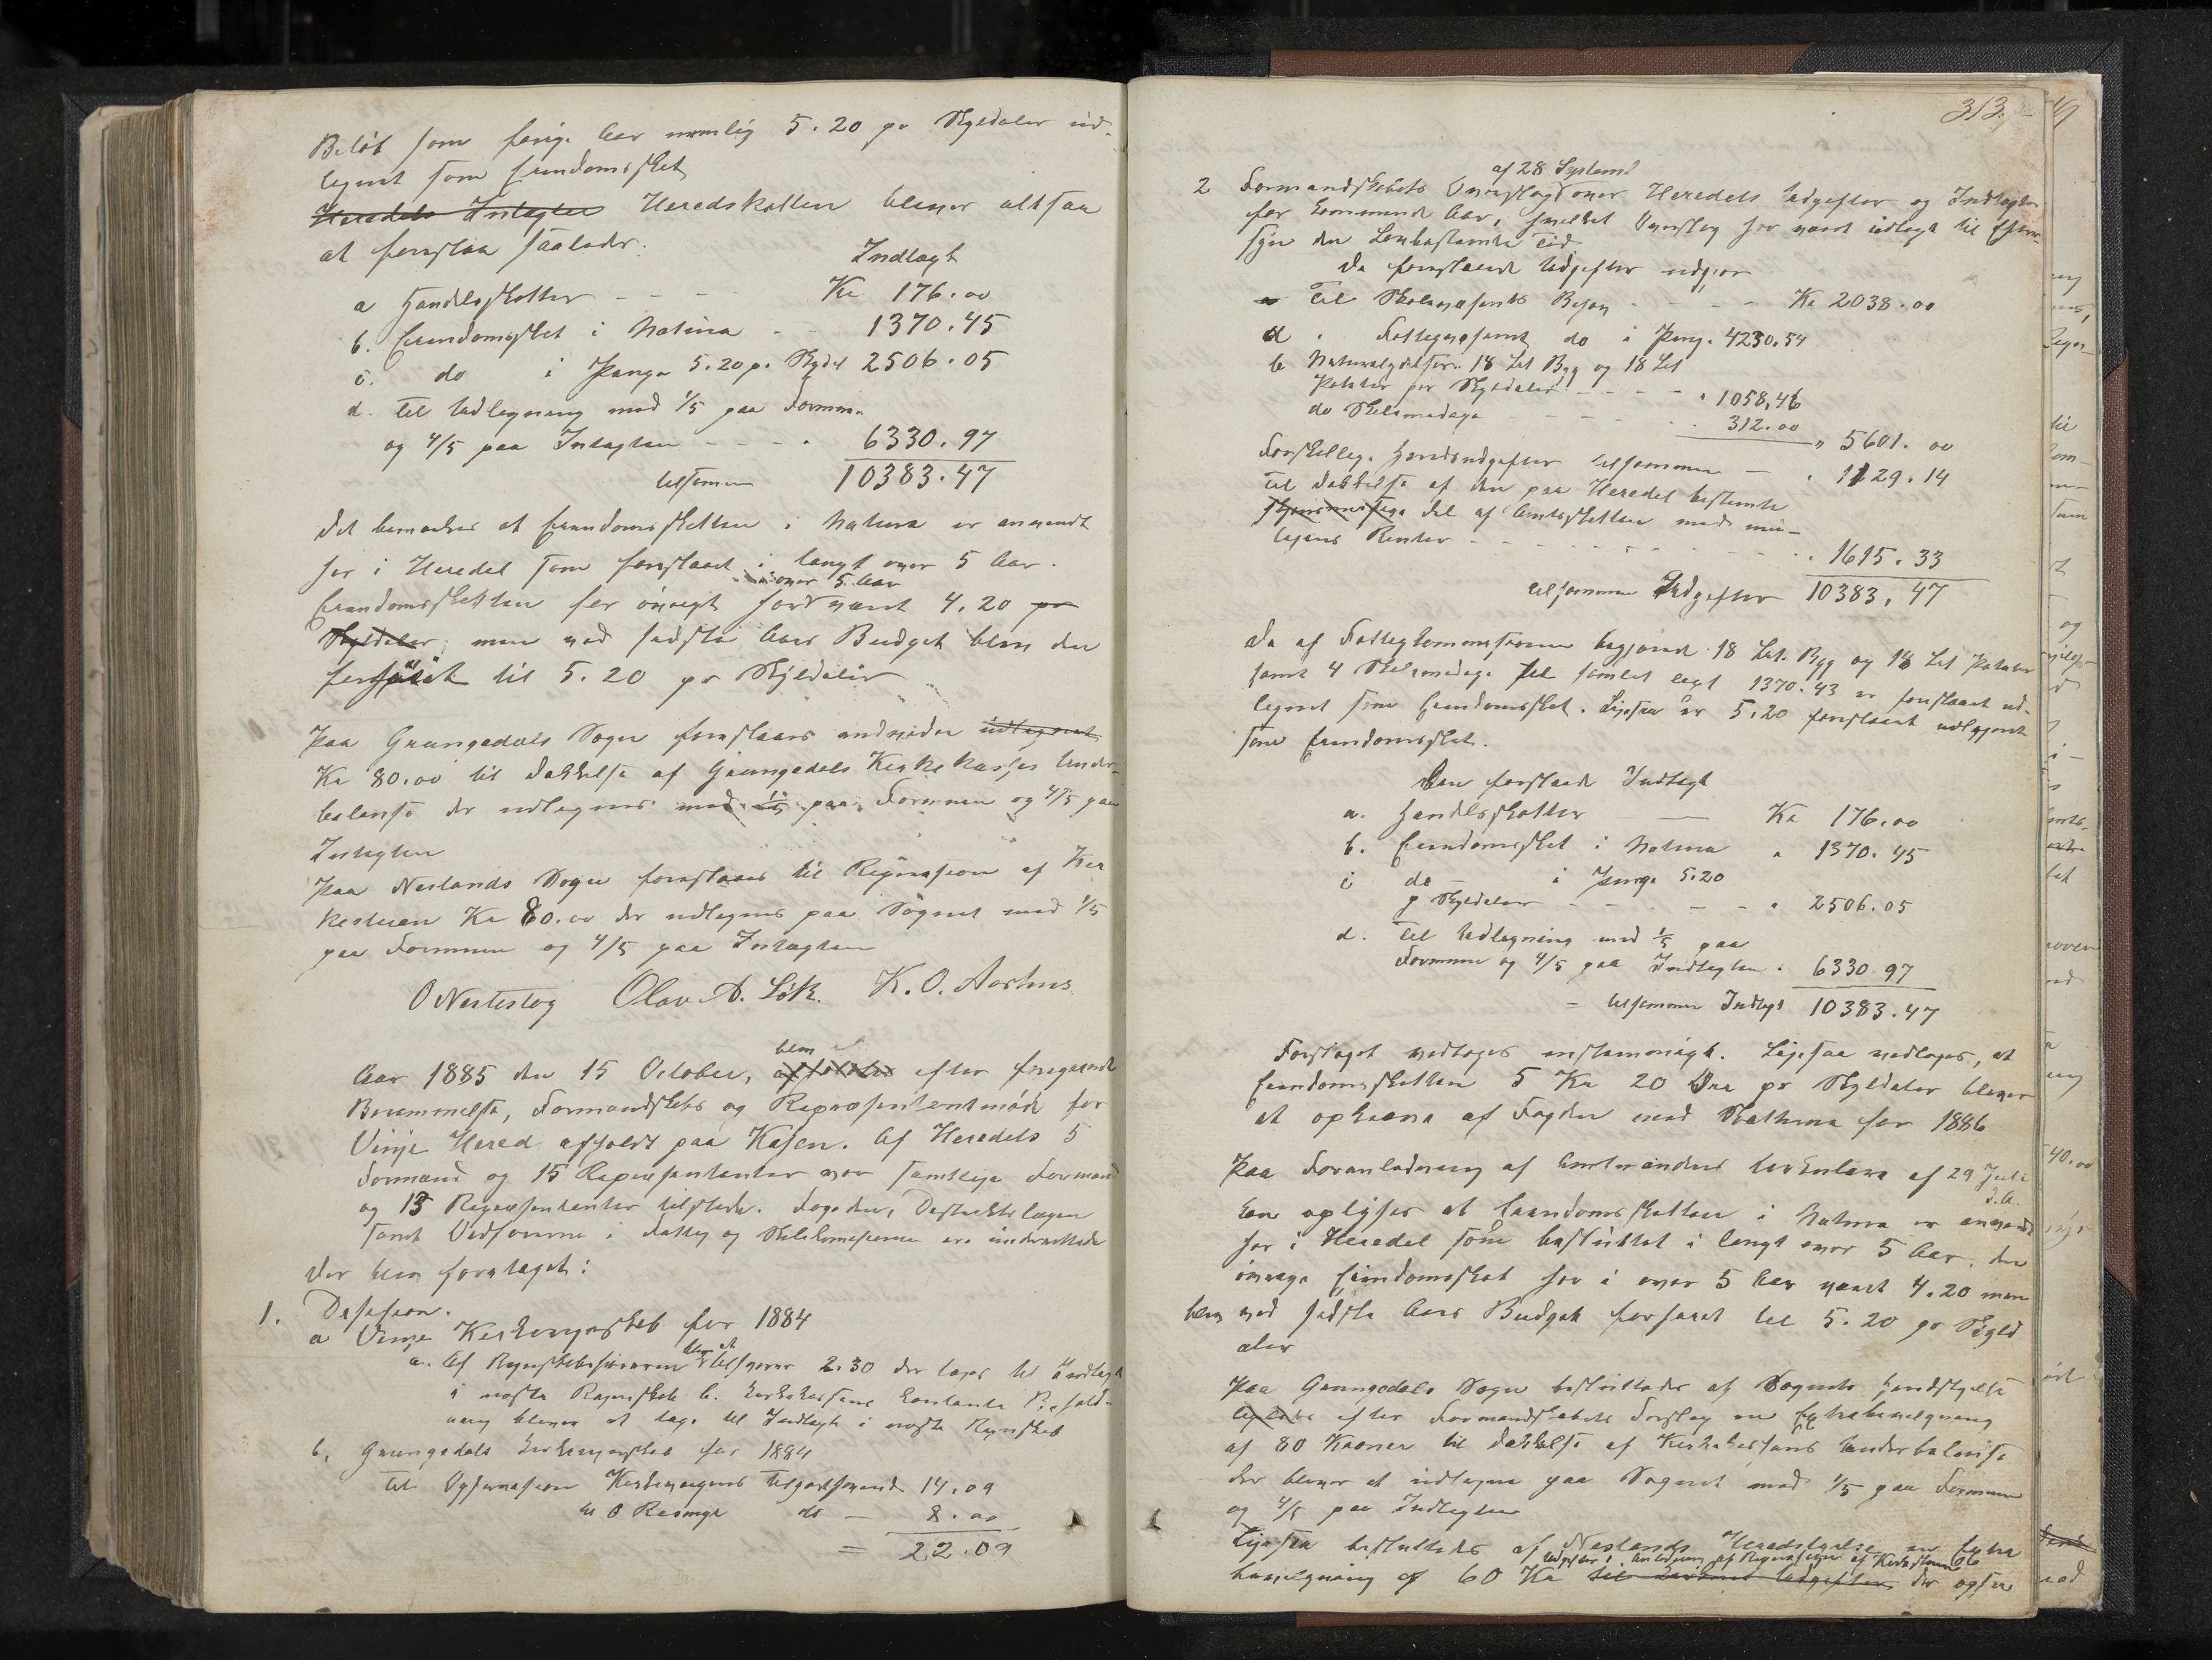 Beløb som forrige Aar nemlig 5.20 pr Skyldaler ud-
lignet som Eiendomsskat
Heredets Intægter Heredskatten bliver altsaa
at foreslaa saaledes:
Indtægt
a Handelsskatter - - - Kr 176.00
b. Eiendomsskat i Natura - - 1370.45
c. do i Penge 5.20 pr. Skyld 2506.05
d. til Udligning med 1/5 paa Formue
og 4/5 paa Intægten - - - - 6330.97
tilsammen 10383.47
Det bemærkes at Eiendomsskatten i Natura er anvendt
her i Heredet som foreslaaet i langt over 5 Aar.
over 5 Aar
Eiendomsskatten for øvrigt har været 4.20 pr
Skyldaler; men ved sidste Aars Budget blev den
forhøiet til 5.20 pr Skyldaler
Paa Grungedals Sogn foreslaaes endvidere udlignet
Kr 80.00 til Dækkelse af Grungedals Kirkekasses Under-
balanse der udlignes med 1/5 paa Formuen og 4/5 paa
Intægten
Paa Neslands Sogn foreslaaes til Reparasion af Kir
kestuen Kr 80.00 der udlignes paa Sognet med 1/5
paa Formuen og 4/5 paa Intægten
O Nestestog Olav A. Lök. K. O. Aarhus
Aar 1885 den 15 October, blev efter foregaaende
Berammelse, Formandskabs og Repræsentantmøde for
Vinje Hered afholdt paa Kasen. Af Heredets 5
Formænd og 15 Repræsentanter var samtlige Formænd
og 13 Repræsentanter tilstede. Fogden, Destriktslægen
samt Ordførerne i Fattig og Skolekomisionen ere underrettede
Der blev foretaget:
1. Desision.
a Vinje Kirkeregnskab for 1884
a. Af Regnskabsføreren blev at 2.30 der tages til Indtægt
i næste Regnskab b. Kirkekassens kontante Behold-
ning bliver at tage til Indtægt i næste Regnskab
b. Grungedals Kirkeregnskab for 1884
til Kirkeværgens Tilgodehavende 14.09
til O do — 8.00
= 22.09
313.
af 28 Septembr
2 Formandskabets Overslag over Heredets Udgifter og Indtægter
for kommende Aar, hvilket Overslag har været udlagt til Efter-
syn den Lovbestemte Tid.
De foreslaaede Udgifter udgjør
Til Skolevæsenets Behov - - - - Kr 2038.00
a " Fattigvæsenets do i Penge 4230.54
b Naturalydelser 18 Lit Byg og 18 Lit
Poteter pr Skyldaler - - - - " 1058,46
do Skolemedage - - - 312.00 " 5601.00
Forskellige Heredsudgifter tilsammen — " 1129.14
Til Dækkelse af den paa Heredet bestemte
Del af Amtsskatten med mu-
ligens Renter - - - - - - - - - " 1615.33
tilsammen Udgifter 10383,47
Da af Fattigkommisionen begjæret 18 Lit. Byg og 18 Lit Poteter
samt 4 Skolemedage til samlet Lagt 1370.43 er foreslaaet ud-
lignet som Eiendomsskat. Ligesaa er 5.20 foreslaaet udlignet
som Eiendomsskat.
Den foreslaaede Indtægt
a. Handelsskatter — Kr 176.00
b. Eiendomsskat i Natura " 1370.45
c do — i Penge 5.20
p Skyldaler - - - - - " 2506.05
d. Til Udligning med 1/5 paa
Formue og 4/5 paa Indtægten . 6330 97
= tilsammen Indtægt 10383.47
Forslaget vedtages enstemmigt. Ligesaa vedtages, at
Eiendomsskatten 5 Kr 20 Øre pr Skyldaler bliver
at opkræve af Fogden med Skatterne for 1886
Paa Foranledning af Amtmandens Cirkulære af 29 Juli
d.A.
at Eiendomsskatten i Natura er anvendt
her i Heredet som besluttet i langt over 5 Aar. den
øvrige Eiendomsskat har i over 5 Aar været 4.20 men
blev ved sidste Aars Budget forhøiet til 5.20 pr Skyld
aler
Paa Grungedals Sogn besluttedes af Sognets Heredstyrelse
efter Formandskabets Forslag en Extrabevilgning
af 80 Kroner til Dækkelse af Kirkekassens Underbalanse
der bliver at udligne paa Sognet med 1/5 paa Formuen
og 4/5 paa Indtægten
Ligesaa besluttedes af Neslands Heredstyrelse en Extra
Udgifter i Anledning af Reparasion af Kirkestuen
bevilgning af 60 Kr til Udgifter der ogsaa